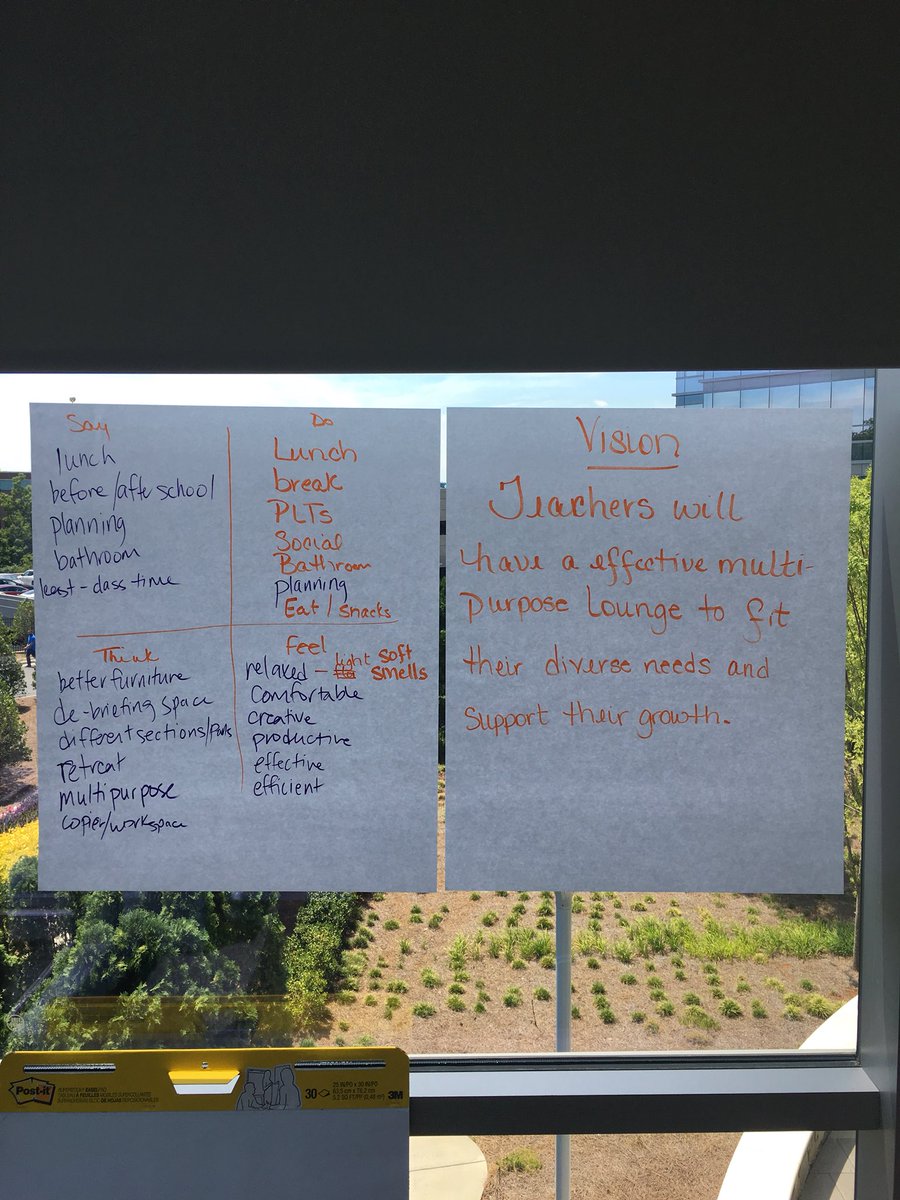 Say
lunch
before/afte school
planning
bathroom
least - class time
Do
Lunch
break
PLTs
Social
Bathroom
planning
Eat / snacks
Think
better furniture
de-briefing space
different sections/
retreat
multipurpose
copier/workspace
Feel
relaxed - light soft
smells
comfortable
creative
productive
effective
efficient
Vision
Teachers will
have a effective multi-
purpose Lounge to fit
their diverse needs and
support their growth.
Post-it
30
25 IN/PO x 30 IN/PO
63,5 cm x 76,2 cm
3M